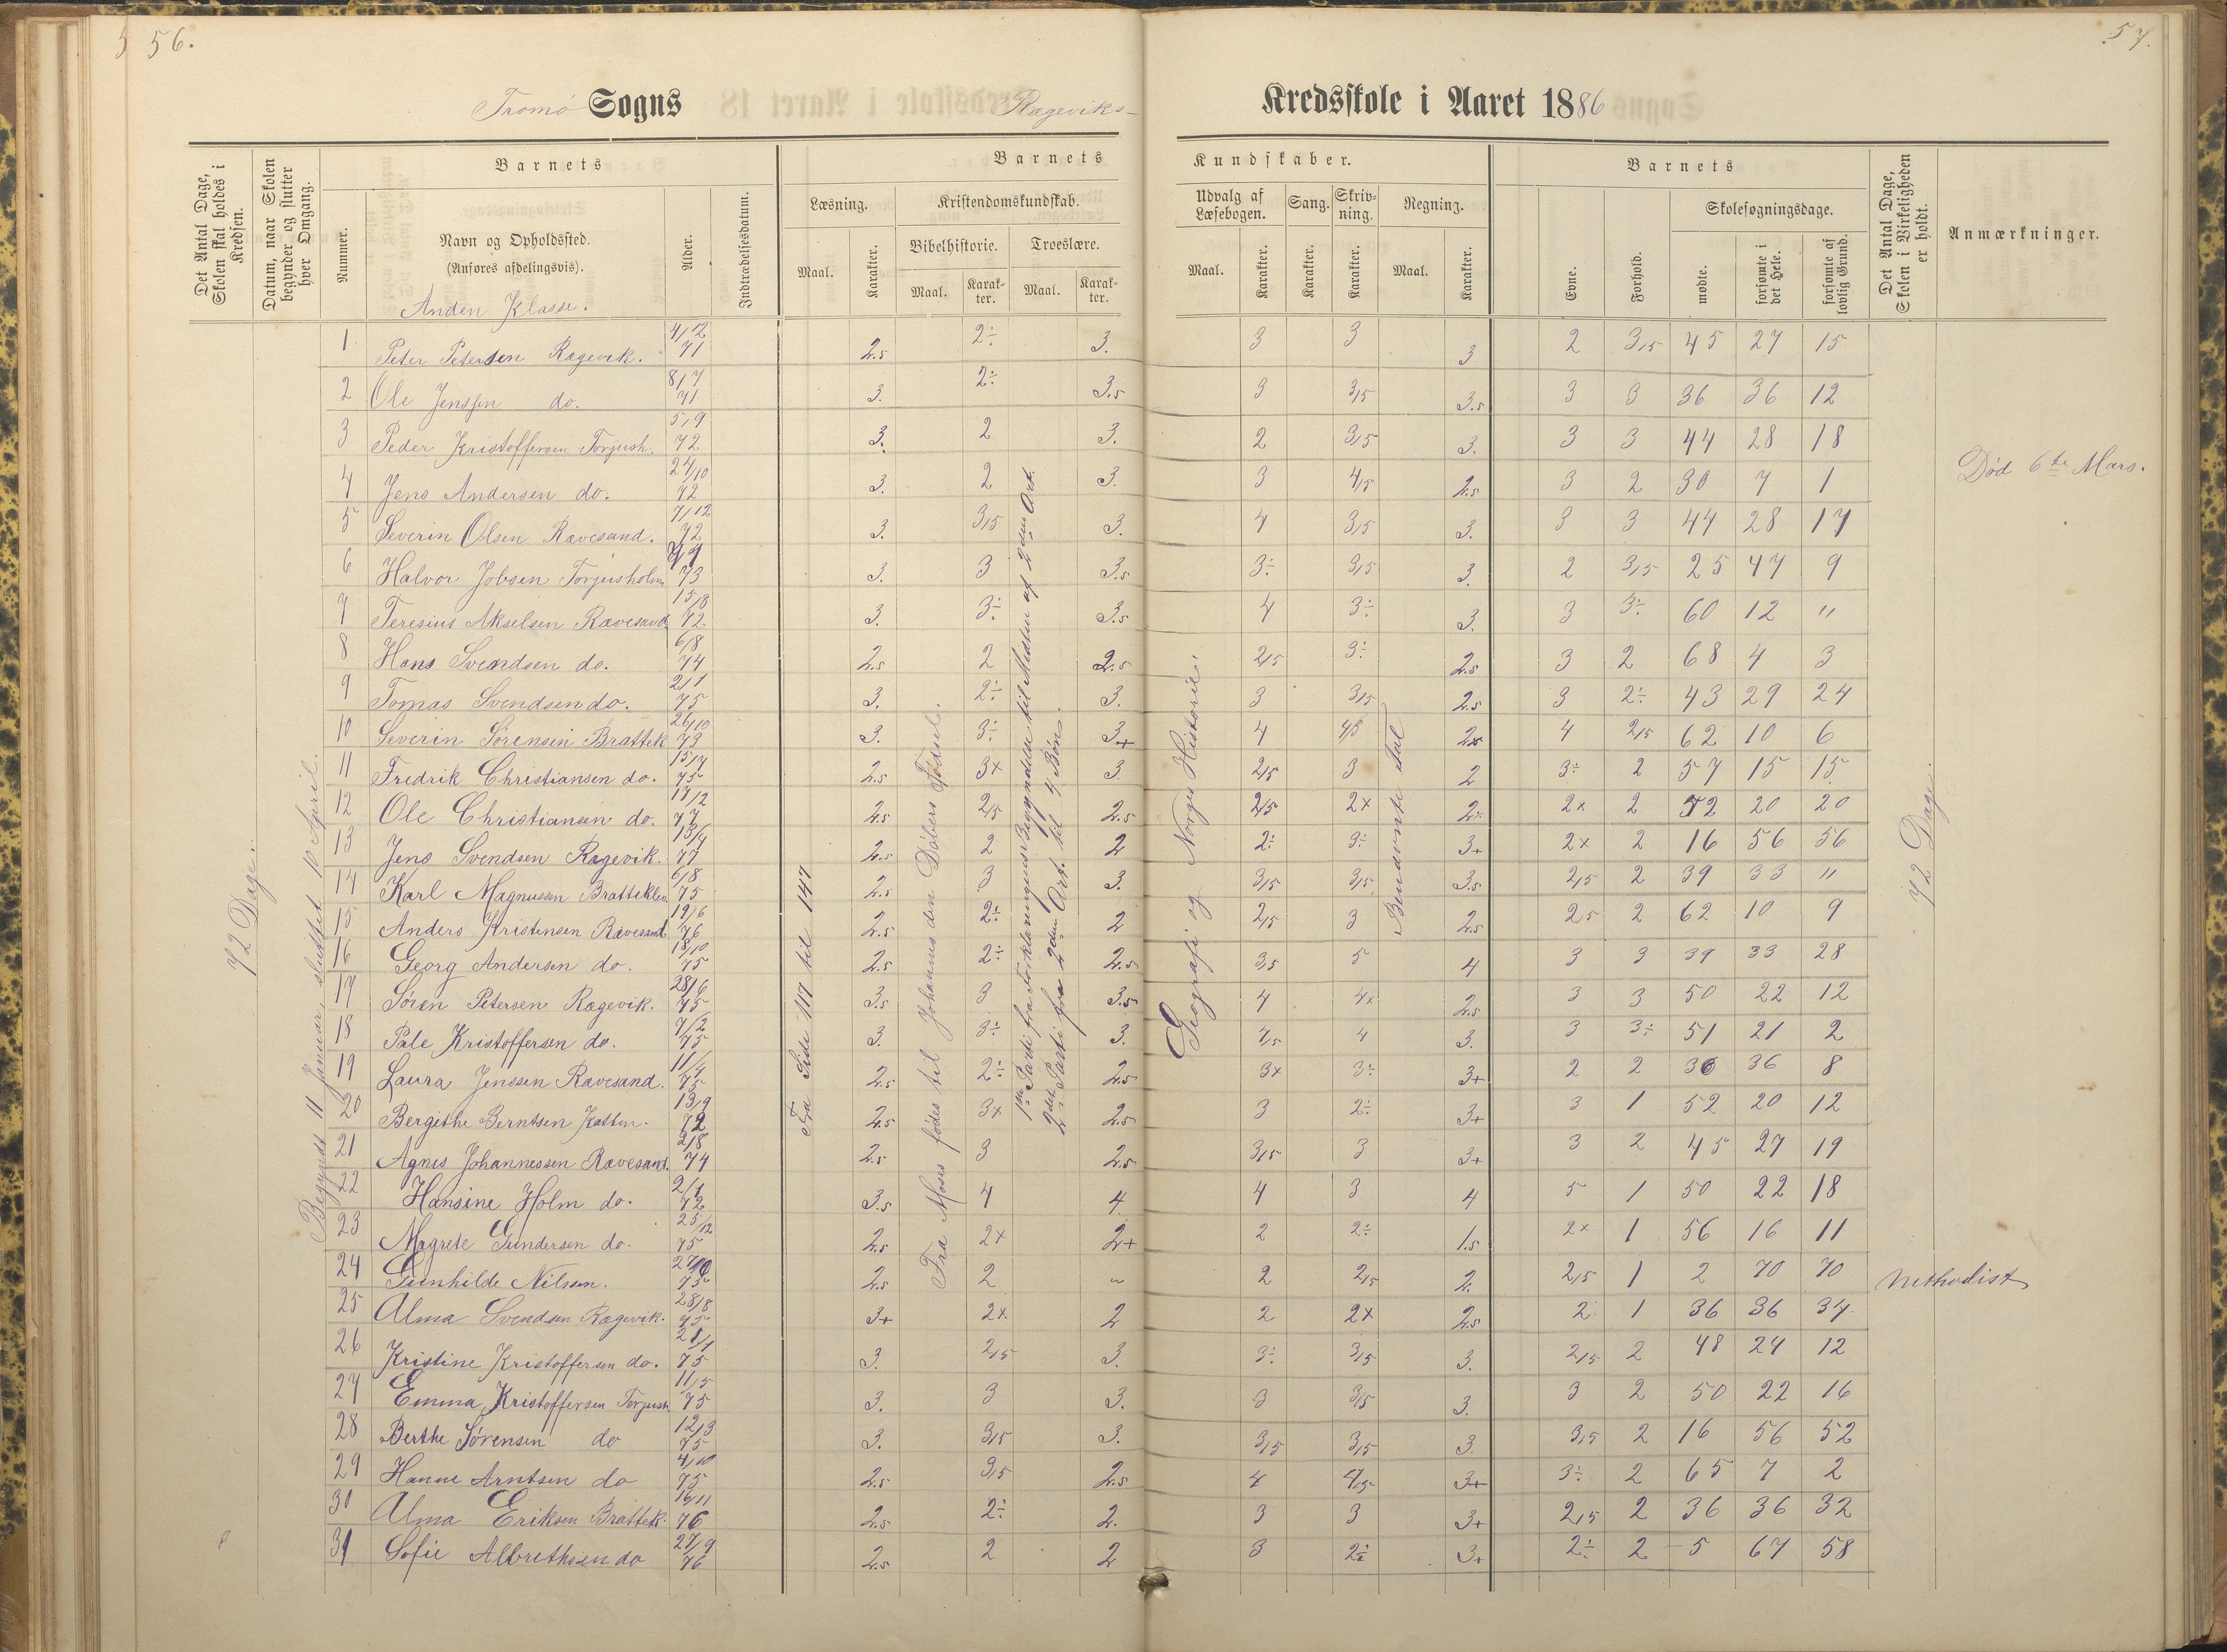 56.
57.
Tromø Sogns Rægeviks-
Kredsskole i Aaret 1886
Det Antal Dage, Skolen skal holdes i Kredsen.
Datum, naar Skolen begynder og slutter hver Omgang.
Nummer.
Barnets
Navn og Opholdssted.
(Anføres afdelingsvis).
Alder.
Indtrædelsesdatum.
Barnets
Kundskaber.
Læsning.
Maal.
Karakter.
Kristendomskundskab.
Bibelhistorie.
Maal.
Karakter.
Troeslære.
Maal.
Karakter.
Udvalg af Læsebogen.
Maal.
Karakter.
Sang.
Karakter.
Skrivning.
Karakter.
Regning.
Maal.
Karakter.
Barnets
Evne.
Forhold.
Skolesøgningsdage.
mødte.
forsømte i det Hele.
forsømte af lovlig Grund.
Det Antal Dage, Skolen i Virkeligheden er holdt.
Anmærkninger.
Anden Klasse.
72 Dage.
Begyndt 11 Januar, sluttet 10 April.
Fra Side 117 til 147
Fra Moses fødes til Johannes den Døbers Fødsel.
1ste Parti fra Forklaringens Begyndelse til Midten af 2den Art.
2det Parti fra 2den Art. til 4 Bøn.
Geografi og Norges Historie.
Benævnte Tal
72 Dage.
1 Peter Petersen Rægevik. 4/12 71 2.5 2÷ 3. 3 3 3 2 3,5 45 27 15
2 Ole Jenssen do. 8/7 71 3. 2÷ 3.5 3 3,5 3.5 3 3 36 36 12
3 Peder Kristoffersen Torjush. 5/9 72 3. 2 3. 2 3,5 3. 3 3 44 28 18
4 Jens Andersen do. 24/10 72 3. 2 3. 3 4,5 2.5 3 2 30 7 1 Død 6te Mars.
5 Severin Olsen Rævesand. 7/12 72 3. 3,5 3. 4 3,5 3. 3 3 44 28 17
6 Halvor Jobsen Torjusholm 73 3. 3 3.5 3÷ 3,5 3. 2 3,5 25 47 9
7 Teresius Akselsen Rævesand 15/8 72 3. 3÷ 3.5 4 3÷ 3. 3 3÷ 60 12 "
8 Hans Svendsen do. 6/8 74 2.5 2 2.5 2,5 3÷ 2.5 3 2 68 4 3
9 Tomas Svendsen do. 2/1 75 3. 2÷ 3. 3 3,5 2.5 3 2÷ 43 29 24
10 Severin Sørensen Brattek 26/10 73 3. 3÷ 3+ 4 4,5 2x 4 2,5 62 10 6
11 Fredrik Christiansen do. 15/7 75 2.5 3x 3. 2,5 3 2 3÷ 2 57 15 15
12 Ole Christiansen do. 17/2 77 2.5 2,5 2.5 2,5 2x 2. 2x 2 52 20 20
13 Jens Svendsen Rægevik. 13/4 77 2.5 2 2 2÷ 3÷ 3+ 2x 2 16 56 56
14 Karl Magnussen Bratteklev 6/8 75 2.5 3 3. 3,5 3,5 3.5 2,5 2 39 33 "
15 Anders Kristensen Rævesand 19/6 76 2.5 2÷ 2 2,5 3 2.5 2,5 2 62 10 9
16 Georg Andersen do. 18/10 75 2.5 2÷ 2.5 3,5 5 4 3 3 39 33 28
17 Søren Petersen Rægevik. 28/6 75 3.5 3 3.5 4 4x 2.5 3 3 50 22 12
18 Pale Kristoffersen do. 7/2 75 3. 3÷ 3. 4,5 4 3. 3 3÷ 51 21 2
19 Laura Jenssen Rævesand. 11/4 75 2.5 2÷ 2.5 3x 3÷ 3+ 2 2 36 36 8
20 Bergithe Berntsen Katten. 13/9 72 2.5 3x 2.5 3 2÷ 3+ 3 1 52 20 12
21 Agnes Johannessen Rævesand. 2/8 74 2.5 3 2.5 3,5 3 3+ 3 2 45 27 19
22 Hansine Holm do. 2/1 72 3.5 4 4. 4 3 4 5 1 50 22 18
23 Magrete Gundersen do. 25/12 75 2.5 2x 2+ 2 2÷ 1.5 2x 1 56 16 11
24 Gunhilde Nilsen. 27/10 75 2.5 2 " 2 2,5 2. 2,5 1 2 70 70 Methodist
25 Alma Svendsen Rægevik. 28/8 75 3+ 2x 2 2 2x 2.5 2 1 36 36 34
26 Kristine Kristoffersen do. 21/1 75 3. 2,5 3. 3÷ 3,5 3. 2,5 2 48 24 12
27 Emma Kristoffersen Torjush 11/5 75 3. 3 3. 3 3,5 3. 3 2 50 22 16
28 Berthe Sørensen do 12/3 75 3. 3,5 3. 3,5 3,5 3. 3,5 2 16 56 52
29 Hanne Arntsen do 4/10 75 2.5 3,5 2.5 4 4,5 3+ 3÷ 2 65 7 2
30 Alma Eriksen Brattek. 16/11 76 2.5 2÷ 2. 3 3 3+ 2,5 2 36 36 32
31 Sofie Albrethsen do 27/9 76 2.5 2 2 3 2÷ 3+ 2÷ 2 5 67 58